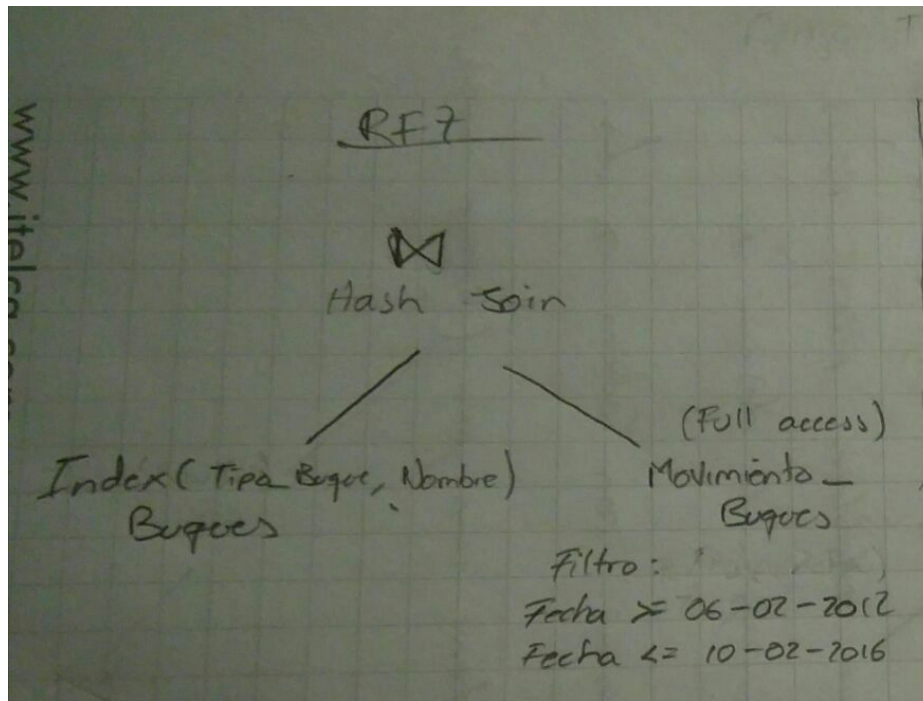 RF7
⋈
Hash Join
Index (Tipo_Buque, Nombre)
Buques
(Full access)
Movimiento_
Buques
Filtro:
Fecha >= 06-02-2012
Fecha <= 10-02-2016